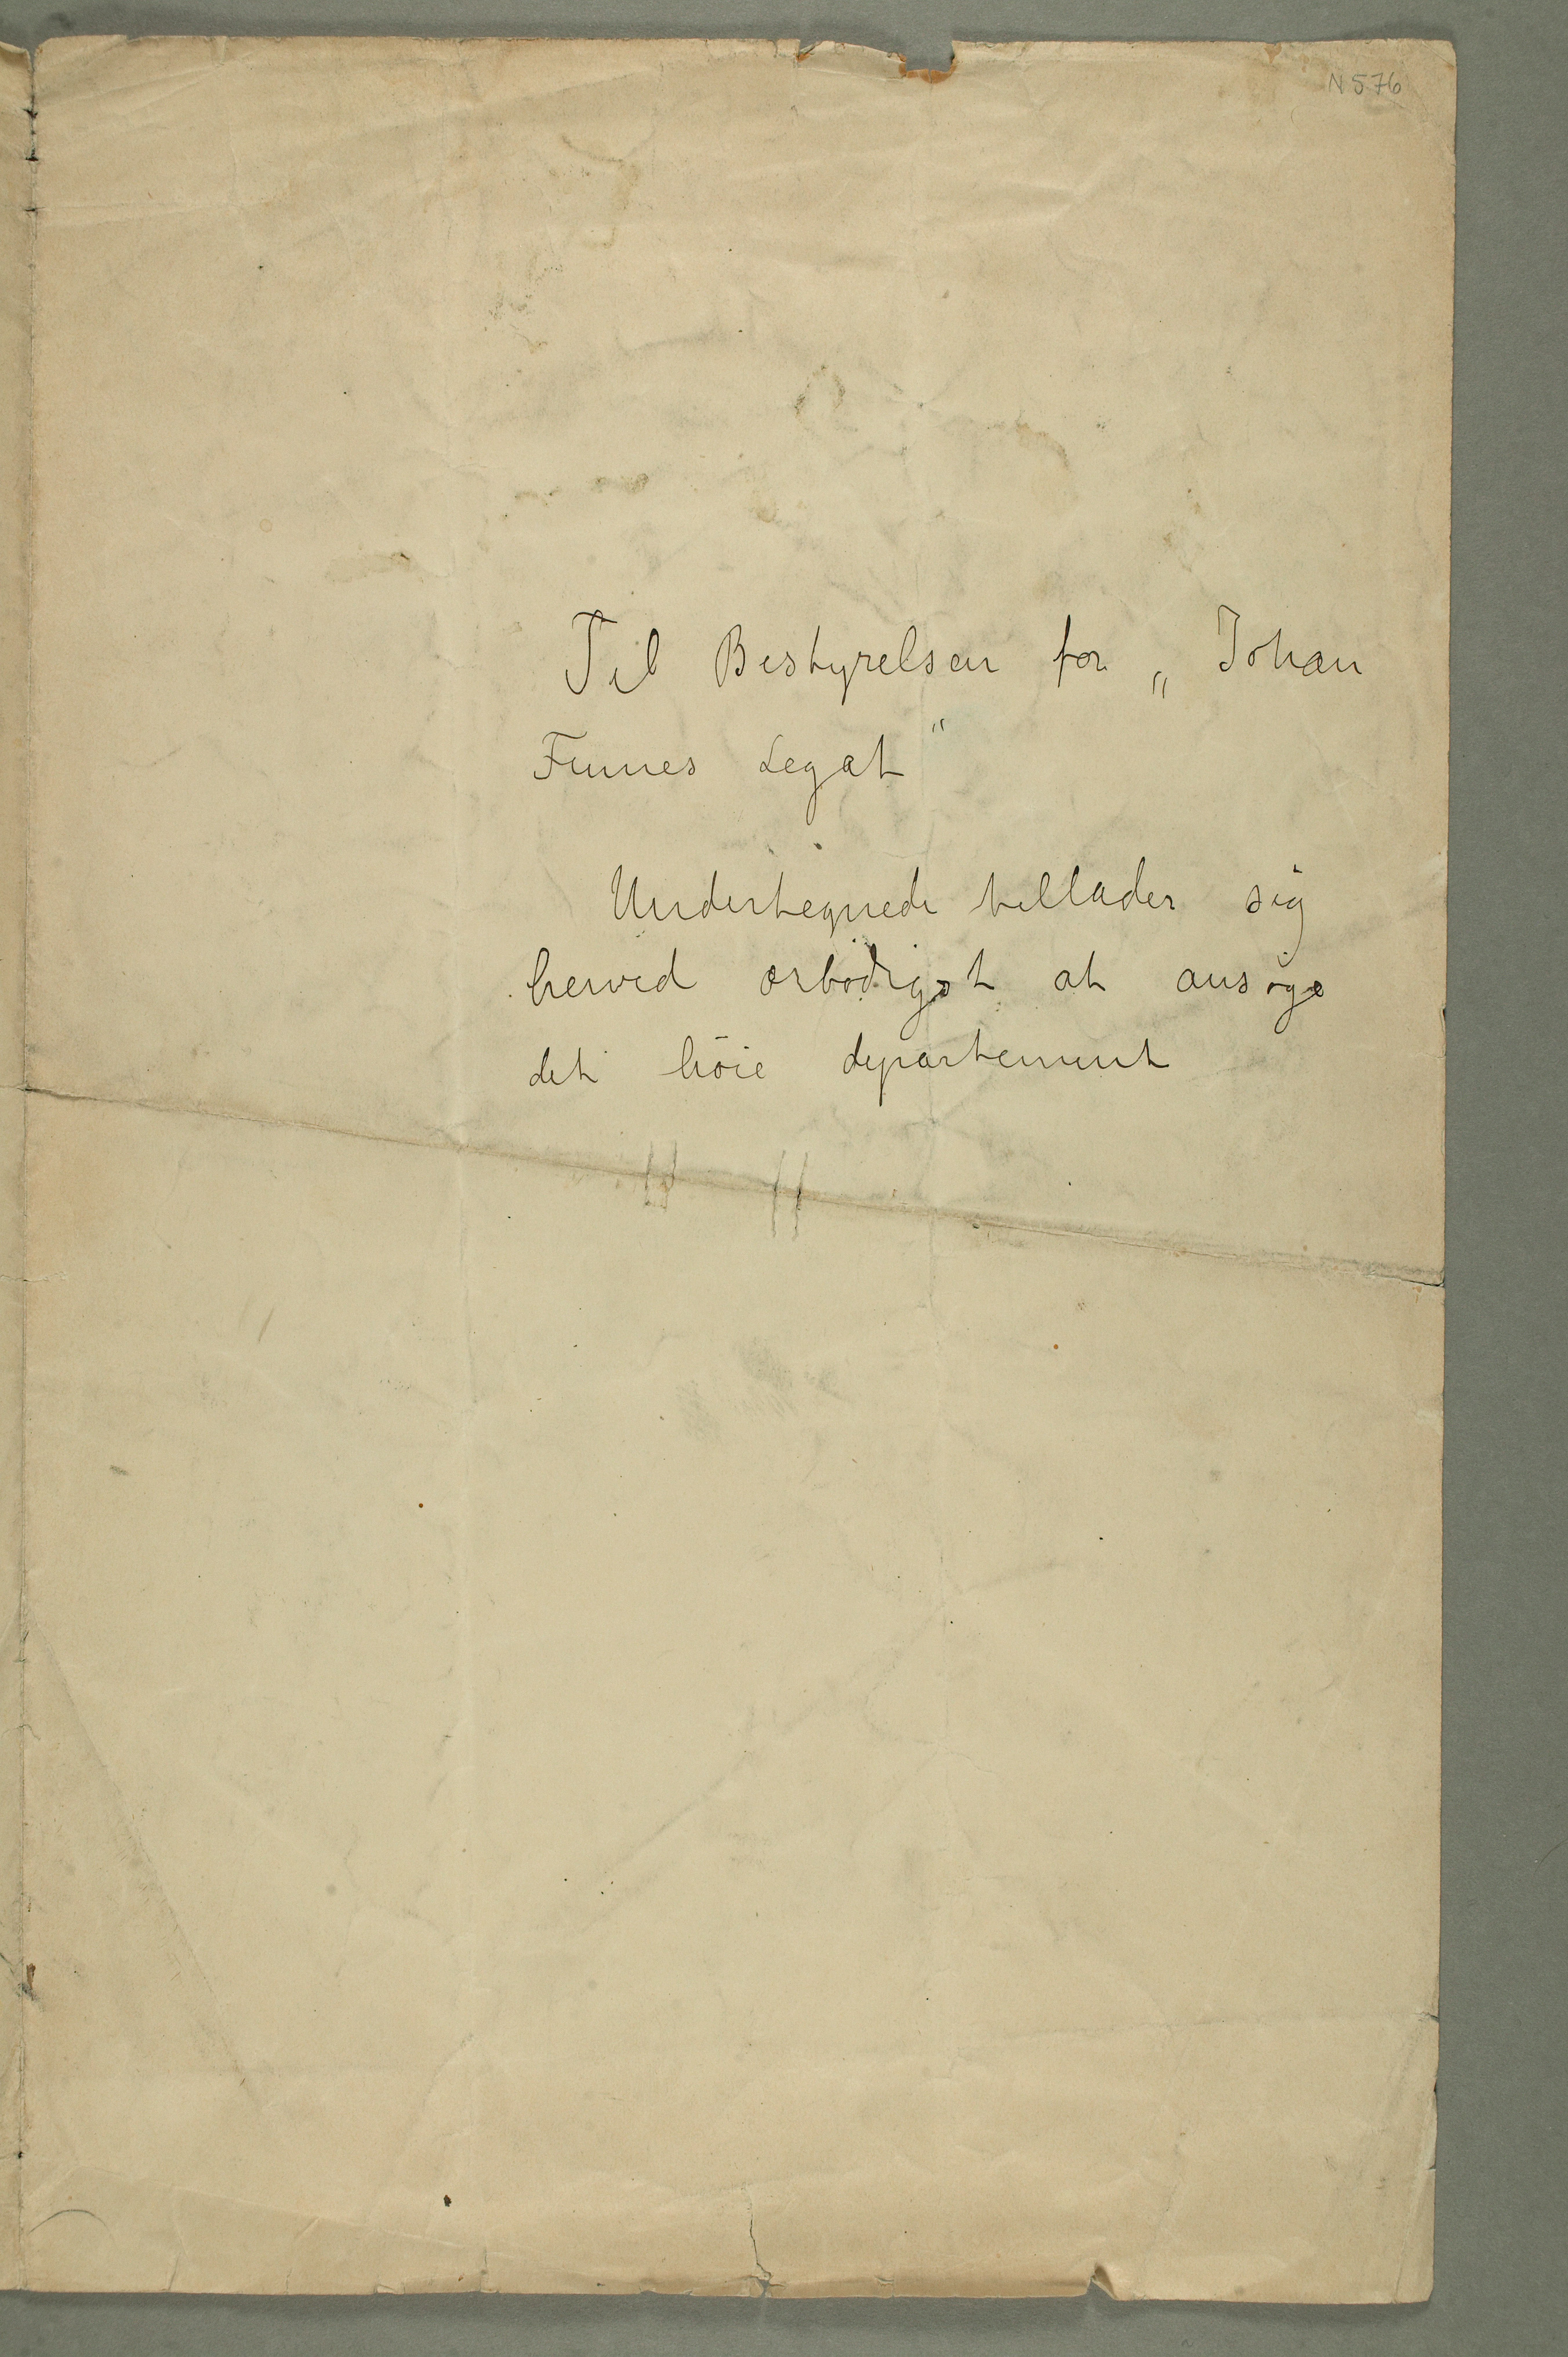 N 576
Til Bestyrelsen for „ Johan
Finnes Legat“
Undertegnede tillader sig
herved ærbödigst at ansöge
det höie departement